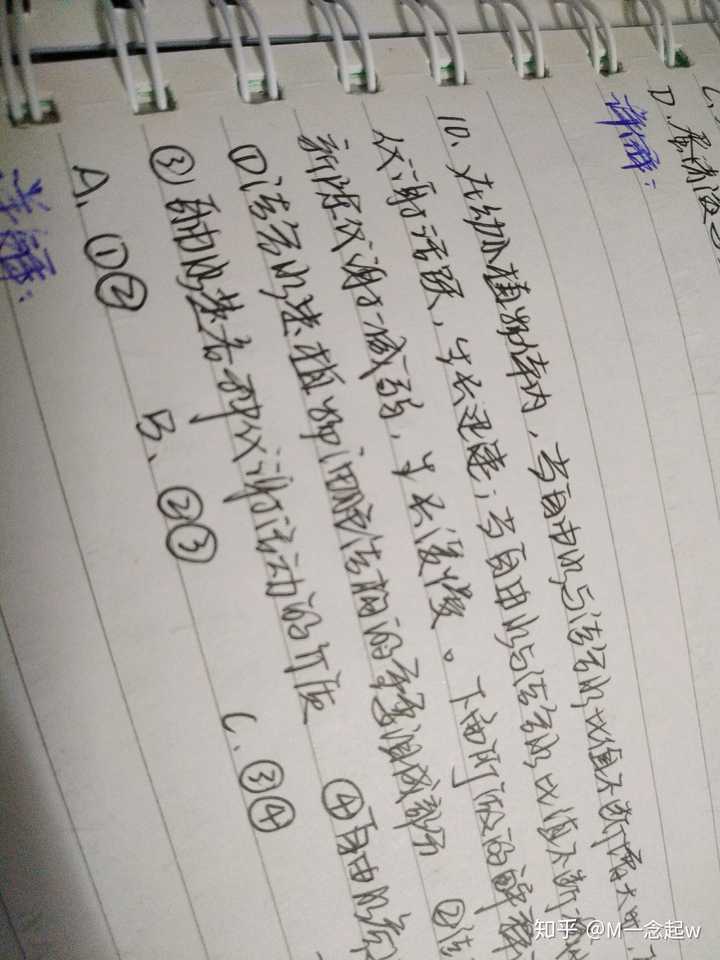 D、蛋清液
详解：
10、在幼小植物体内，当自由水与结合水比值不断增大时，
代谢活跃，生长迅速；当自由水与结合水比值不断
新陈代谢减弱，生长缓慢。下面所做的解释
①结合水是植物细胞结构的重要组成部分 ②结
③自由水是各种代谢活动的介质 ④自由水
A、①② B、②③ C、③④
详解：
知乎 @M一念起w